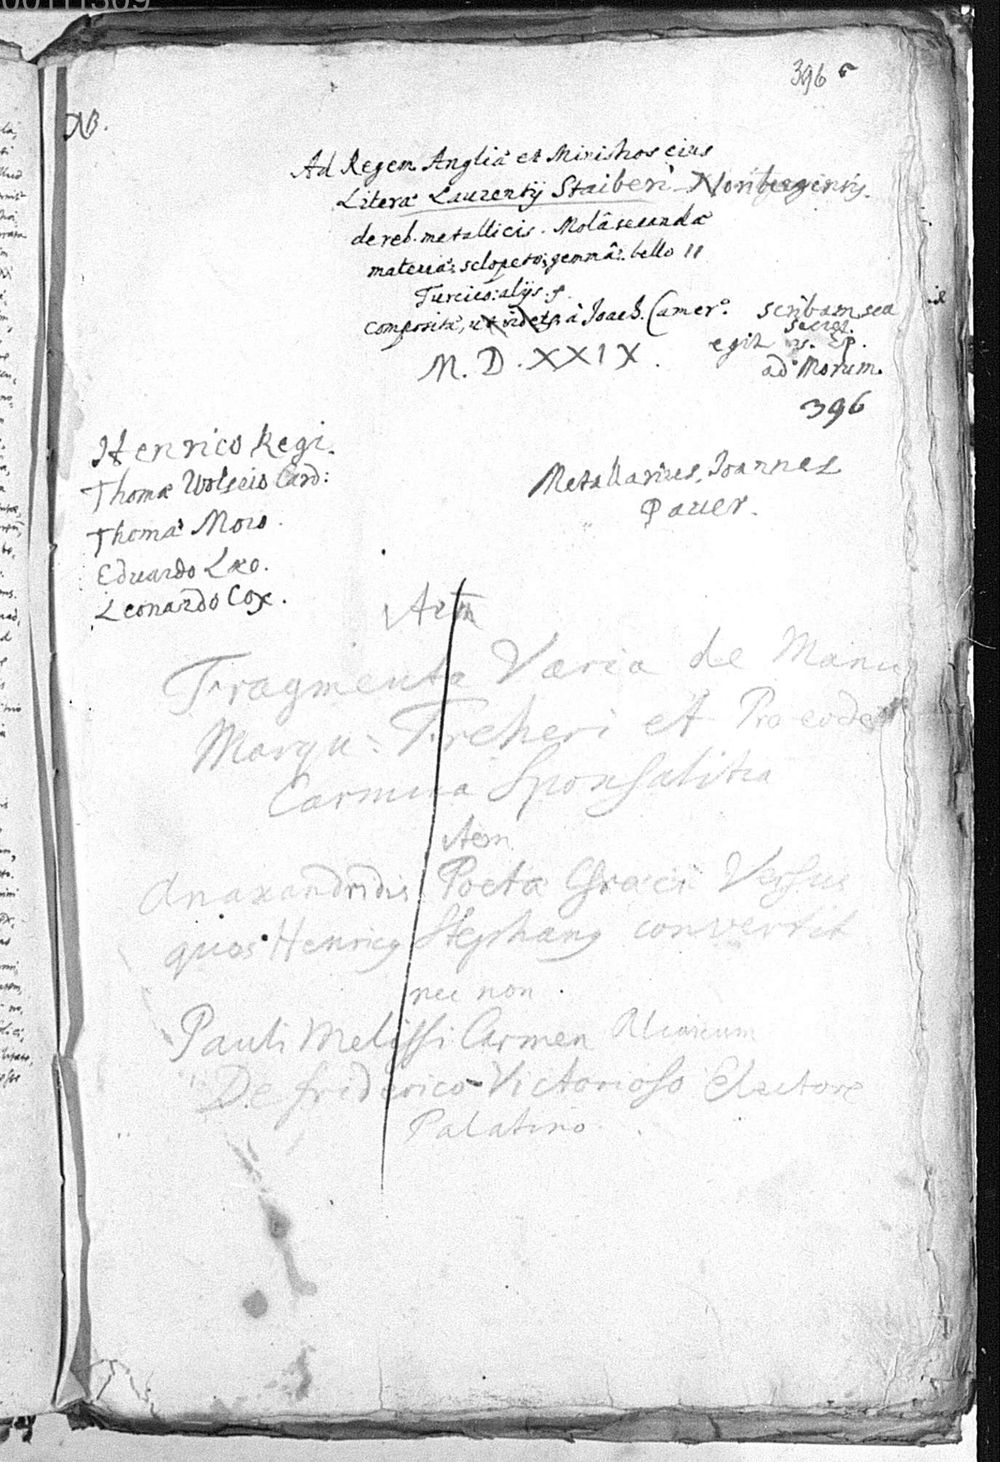 396
NB.
Ad Regem Angliæ et Ministros eius
Literæ Laurentij Staiberi Noribergensis
de reb. metallicis. Molâ secandæ
materiæ: sclopeto: gemmâ: bello
Turcico: alijs
compositæ, ut videtr à Joach. Camer°
scribam seu
secret.
egit
Ep.
ad Morum.
M. D. XXIX.
396
Henrico Regi.
Thomæ Wolseio Card:
Thomæ Moro.
Eduardo Læo.
Leonardo Cox.
Metallarius, Joannes
Paver.
Item
Fragmenta Varia de Manu
Marqu: Freheri et Pro eodem
Carmina Sponsalitia
Item
Anaxandridis Poetæ Græci Versus
quos Henricus Stephanus convertit
nec non
Pauli Melissi Carmen Alcaicum
De friderico Victorioso Electore
Palatino